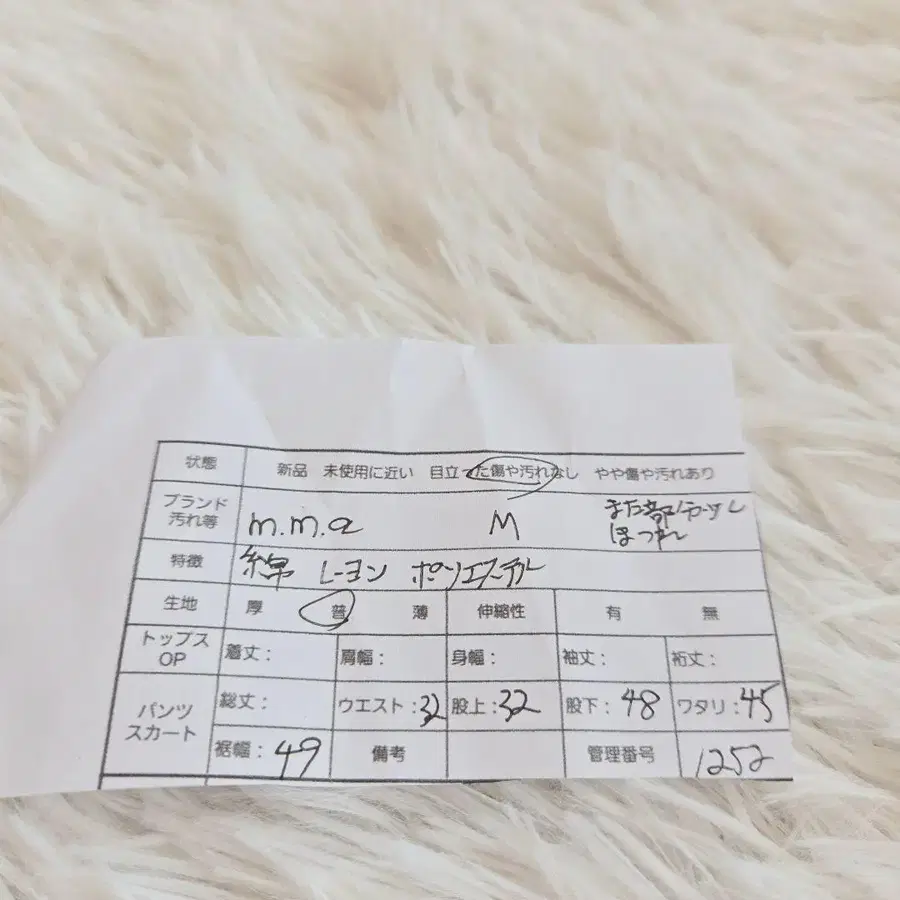 状態 新品 未使用に近い 目立った傷や汚れなし やや傷や汚れあり
ブランド 汚れ等 m.m.a M また部 ほつれ
特徴 綿 レーヨン ポリエステル
生地 厚 普 薄 伸縮性 有 無
トップス OP 着丈: 肩幅: 身幅: 袖丈: 裄丈:
パンツ スカート 総丈: ウエスト:32 股上:32 股下:48 ワタリ:45
裾幅:49 備考 管理番号 1252